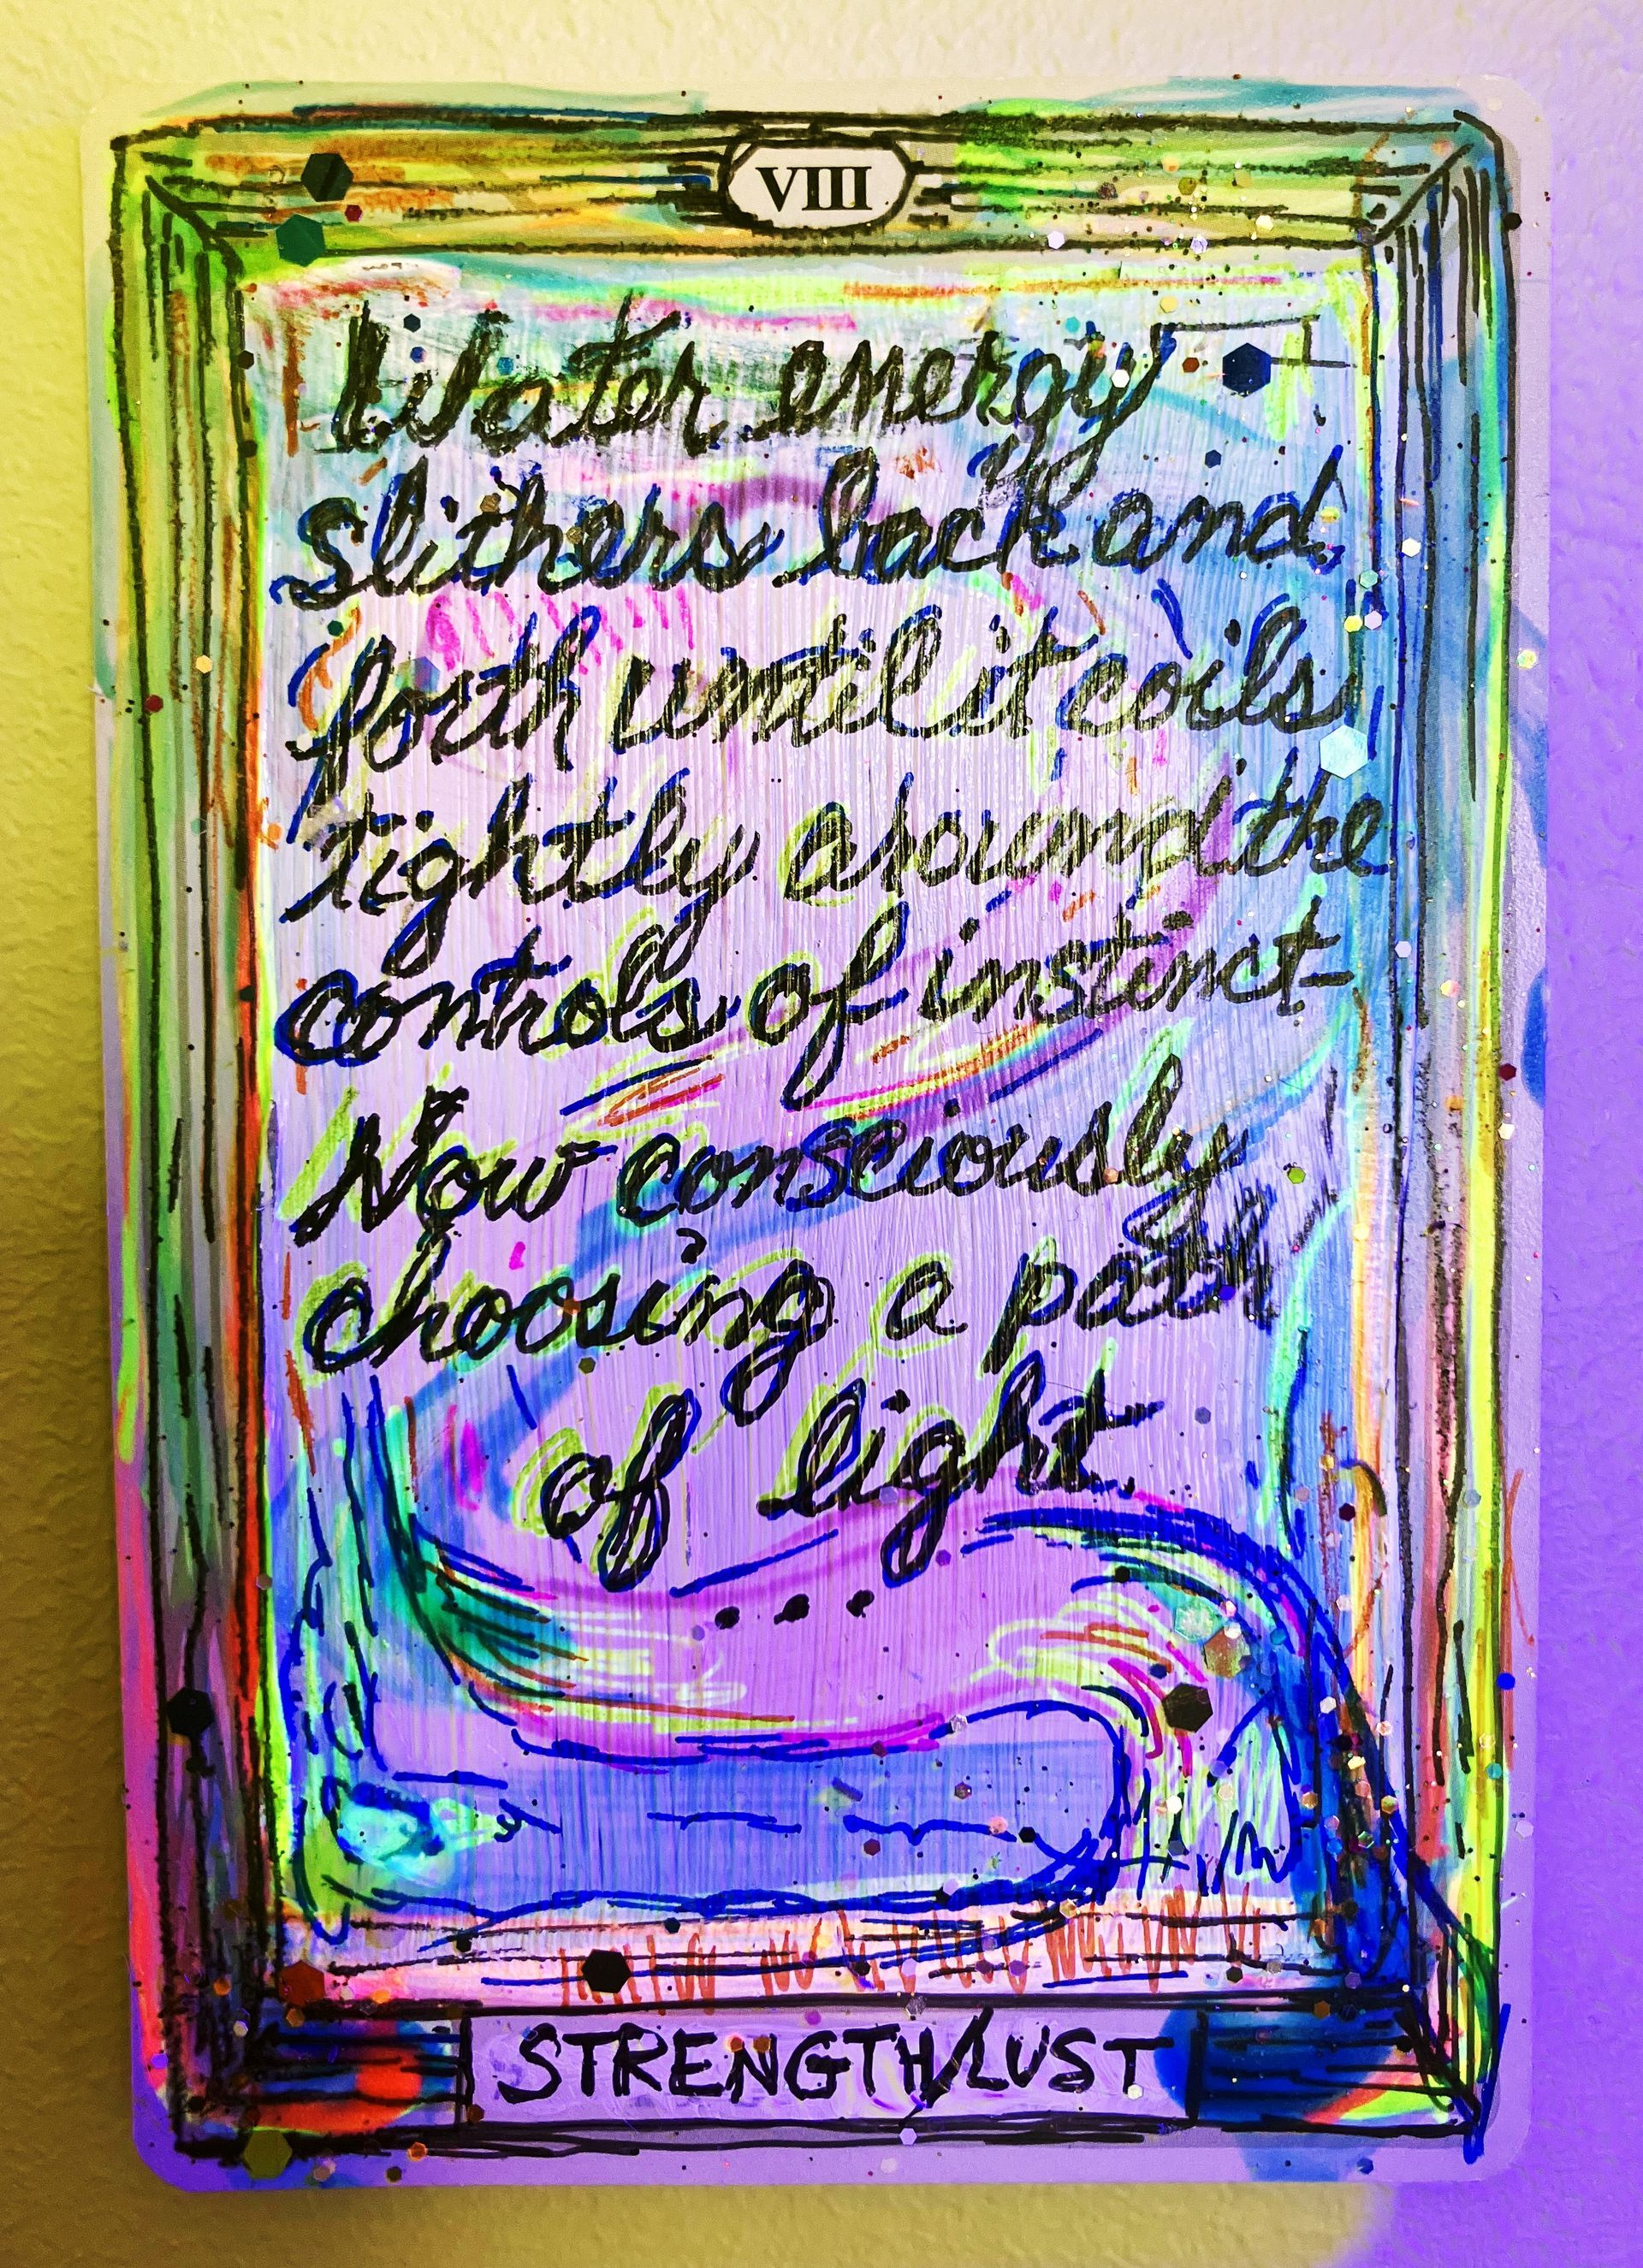 VIII
Water energy
slithers back and
forth until it coils
tightly around the
controls of instinct-
Now consciously
choosing a path
of light.
...
STRENGTH/LUST